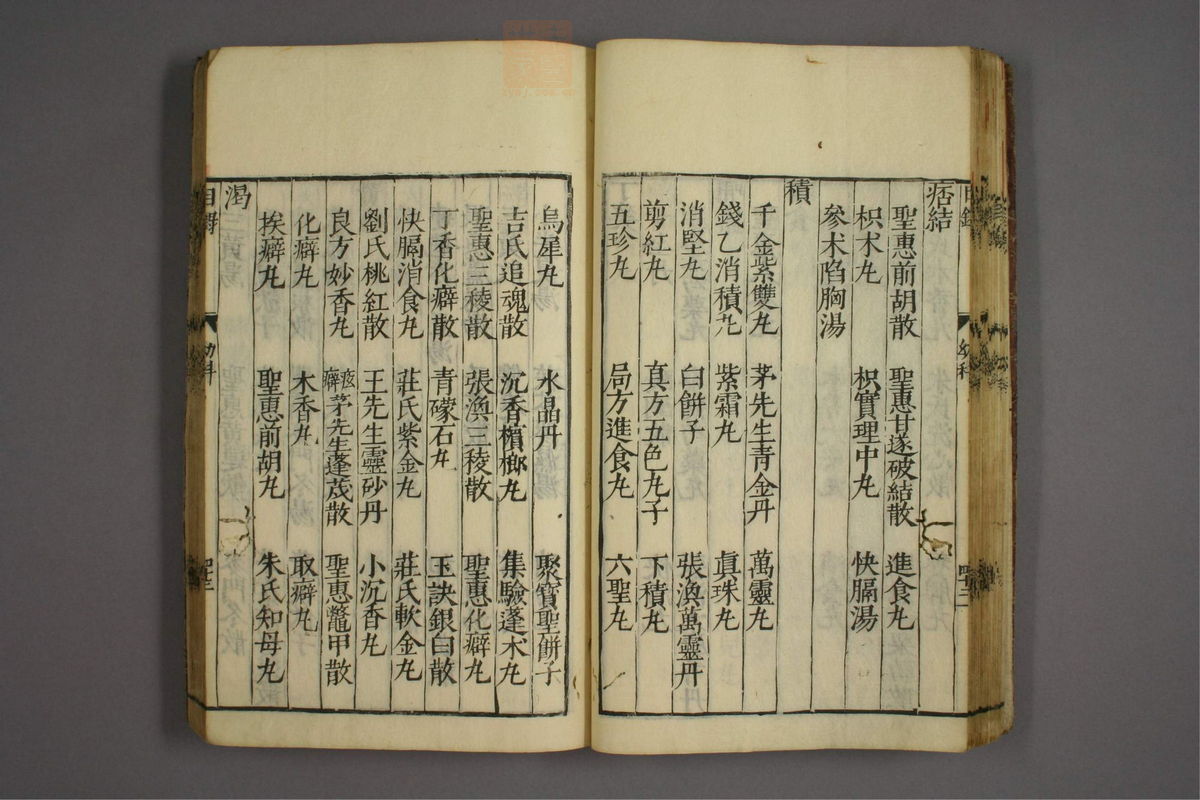 目錄 幼科 四十二
痞結
聖惠前胡散 聖惠甘遂破結散 進食丸
枳朮丸 枳實理中丸 快膈湯
參朮陷胸湯
積
千金紫雙丸 茅先生青金丹 萬靈丸
錢乙消積丸 紫霜丸 真珠丸
消堅丸 白餅子 張渙萬靈丹
剪紅丸 真方五色丸子 下積丸
五珍丸 局方進食丸 六聖丸
烏犀丸 水晶丹 聚寶聖餅子
吉氏追魂散 沉香檳榔丸 集驗蓬朮丸
聖惠三稜散 張渙三稜散 聖惠化癖丸
丁香化癖散 青礞石丸 玉訣銀白散
快膈消食丸 莊氏紫金丸 莊氏軟金丸
劉氏桃紅散 王先生靈砂丹 小沉香丸
良方妙香丸 痃癖茅先生蓬莪散 聖惠鱉甲散
化癖丸 木香丸 取癖丸
挨癖丸 聖惠前胡丸 朱氏知母丸
渴
目錄 幼科